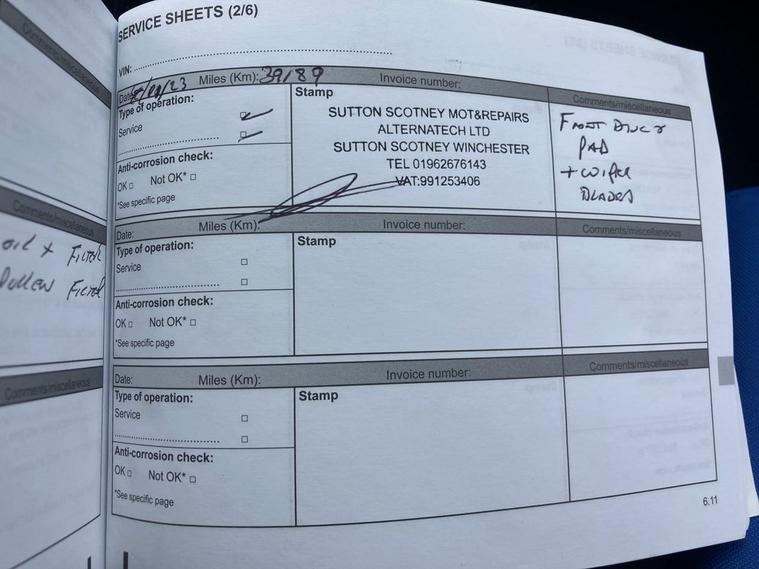 SERVICE SHEETS (2/6)
VIN:
Date: Miles (Km): 39189 Invoice number:
Type of operation:
Service
Anti-corrosion check:
OK Not OK*
*See specific page
Stamp
SUTTON SCOTNEY MOT&REPAIRS
ALTERNATECH LTD
SUTTON SCOTNEY WINCHESTER
TEL 01962676143
VAT:991253406
Comments/miscellaneous
FRONT DISC &
PAD
+ WIPER
BLADES
Date: Miles (Km): Invoice number:
Type of operation:
Service
Anti-corrosion check:
OK Not OK*
*See specific page
Stamp
Comments/miscellaneous
Date: Miles (Km): Invoice number:
Type of operation:
Service
Anti-corrosion check:
OK Not OK*
*See specific page
Stamp
Comments/miscellaneous
6.11
Comments/miscellaneous
Comments/miscellaneous
OIL + FILTER
POLLEN FILTER
Comments/miscellaneous